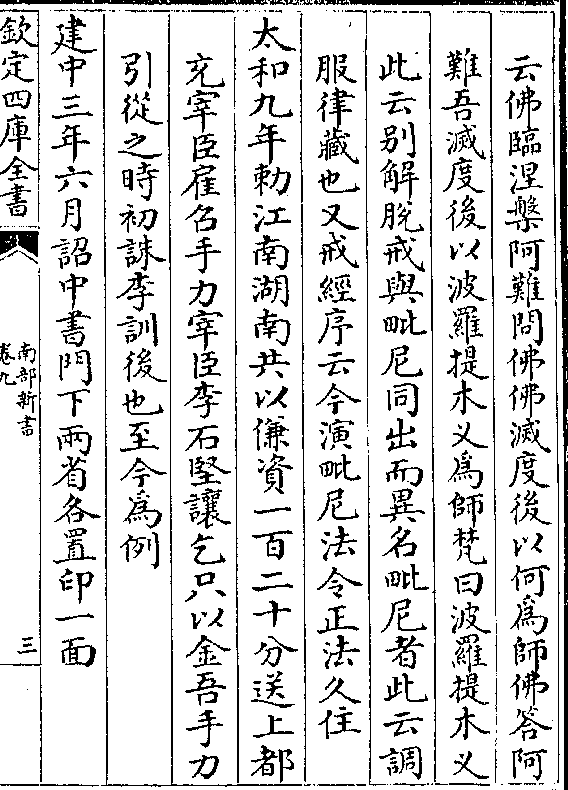 云佛臨涅槃阿難問佛佛滅度後以何為師佛答阿
難吾滅度後以波羅提木义為師梵曰波羅提木义
此云别解脱戒與毗尼同出而異名毗尼者此云調
服律藏也又戒經序云今演毗尼法令正法久住
太和九年勅江南湖南共以傔資一百二十分送上都
充宰臣雇召手力宰臣李石堅讓乞只以金吾手力
引從之時初誅李訓後也至今為例
建中三年六月詔中書門下兩省各置印一面
欽定四庫全書
南部新書
卷九
三